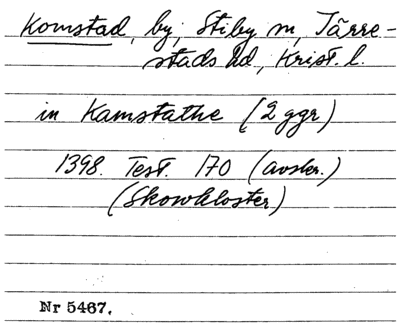 Komstad, by, Stiby sn, Järre-
stads hd, Krist. l.
in Kamstathe (2 ggr)
1398. Test. 170 (avskr.)
(Skowkloster)
Nr 5467.